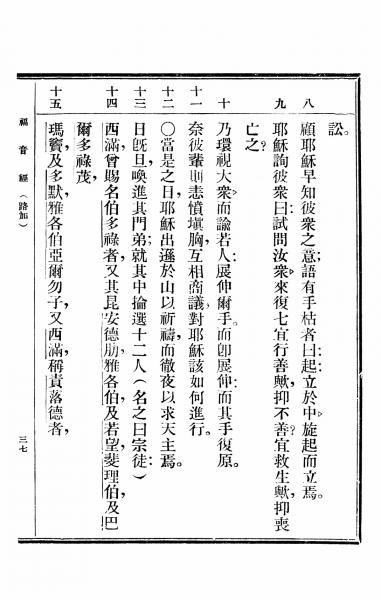 訟。
八 顧耶穌早知彼衆之意；語有手枯者曰：起；立於中，旋起而立焉。
九 耶穌詢彼衆曰：試問汝衆，來復七宜行善歟，抑不善？宜救生歟，抑喪
亡之？
十 乃環視大衆，而諭若人：展伸爾手。而卽展伸，而其手復原。
十一 奈彼輩則恚憤塡胸，互相商議，對耶穌該如何進行。
十二 〇當是之日，耶穌出遯於山以祈禱，而徹夜以求天主焉。
十三 日旣旦，喚進其門弟；就其中掄選十二人（名之曰宗徒：）
十四 西滿，曾賜名伯多祿者，又其昆安德肋，雅各伯及若望，斐理伯及巴
爾多祿茂，
十五 瑪竇，及多默，雅各伯亞爾勿子，又西滿，稱責落德者，
福音經（路加） 三七